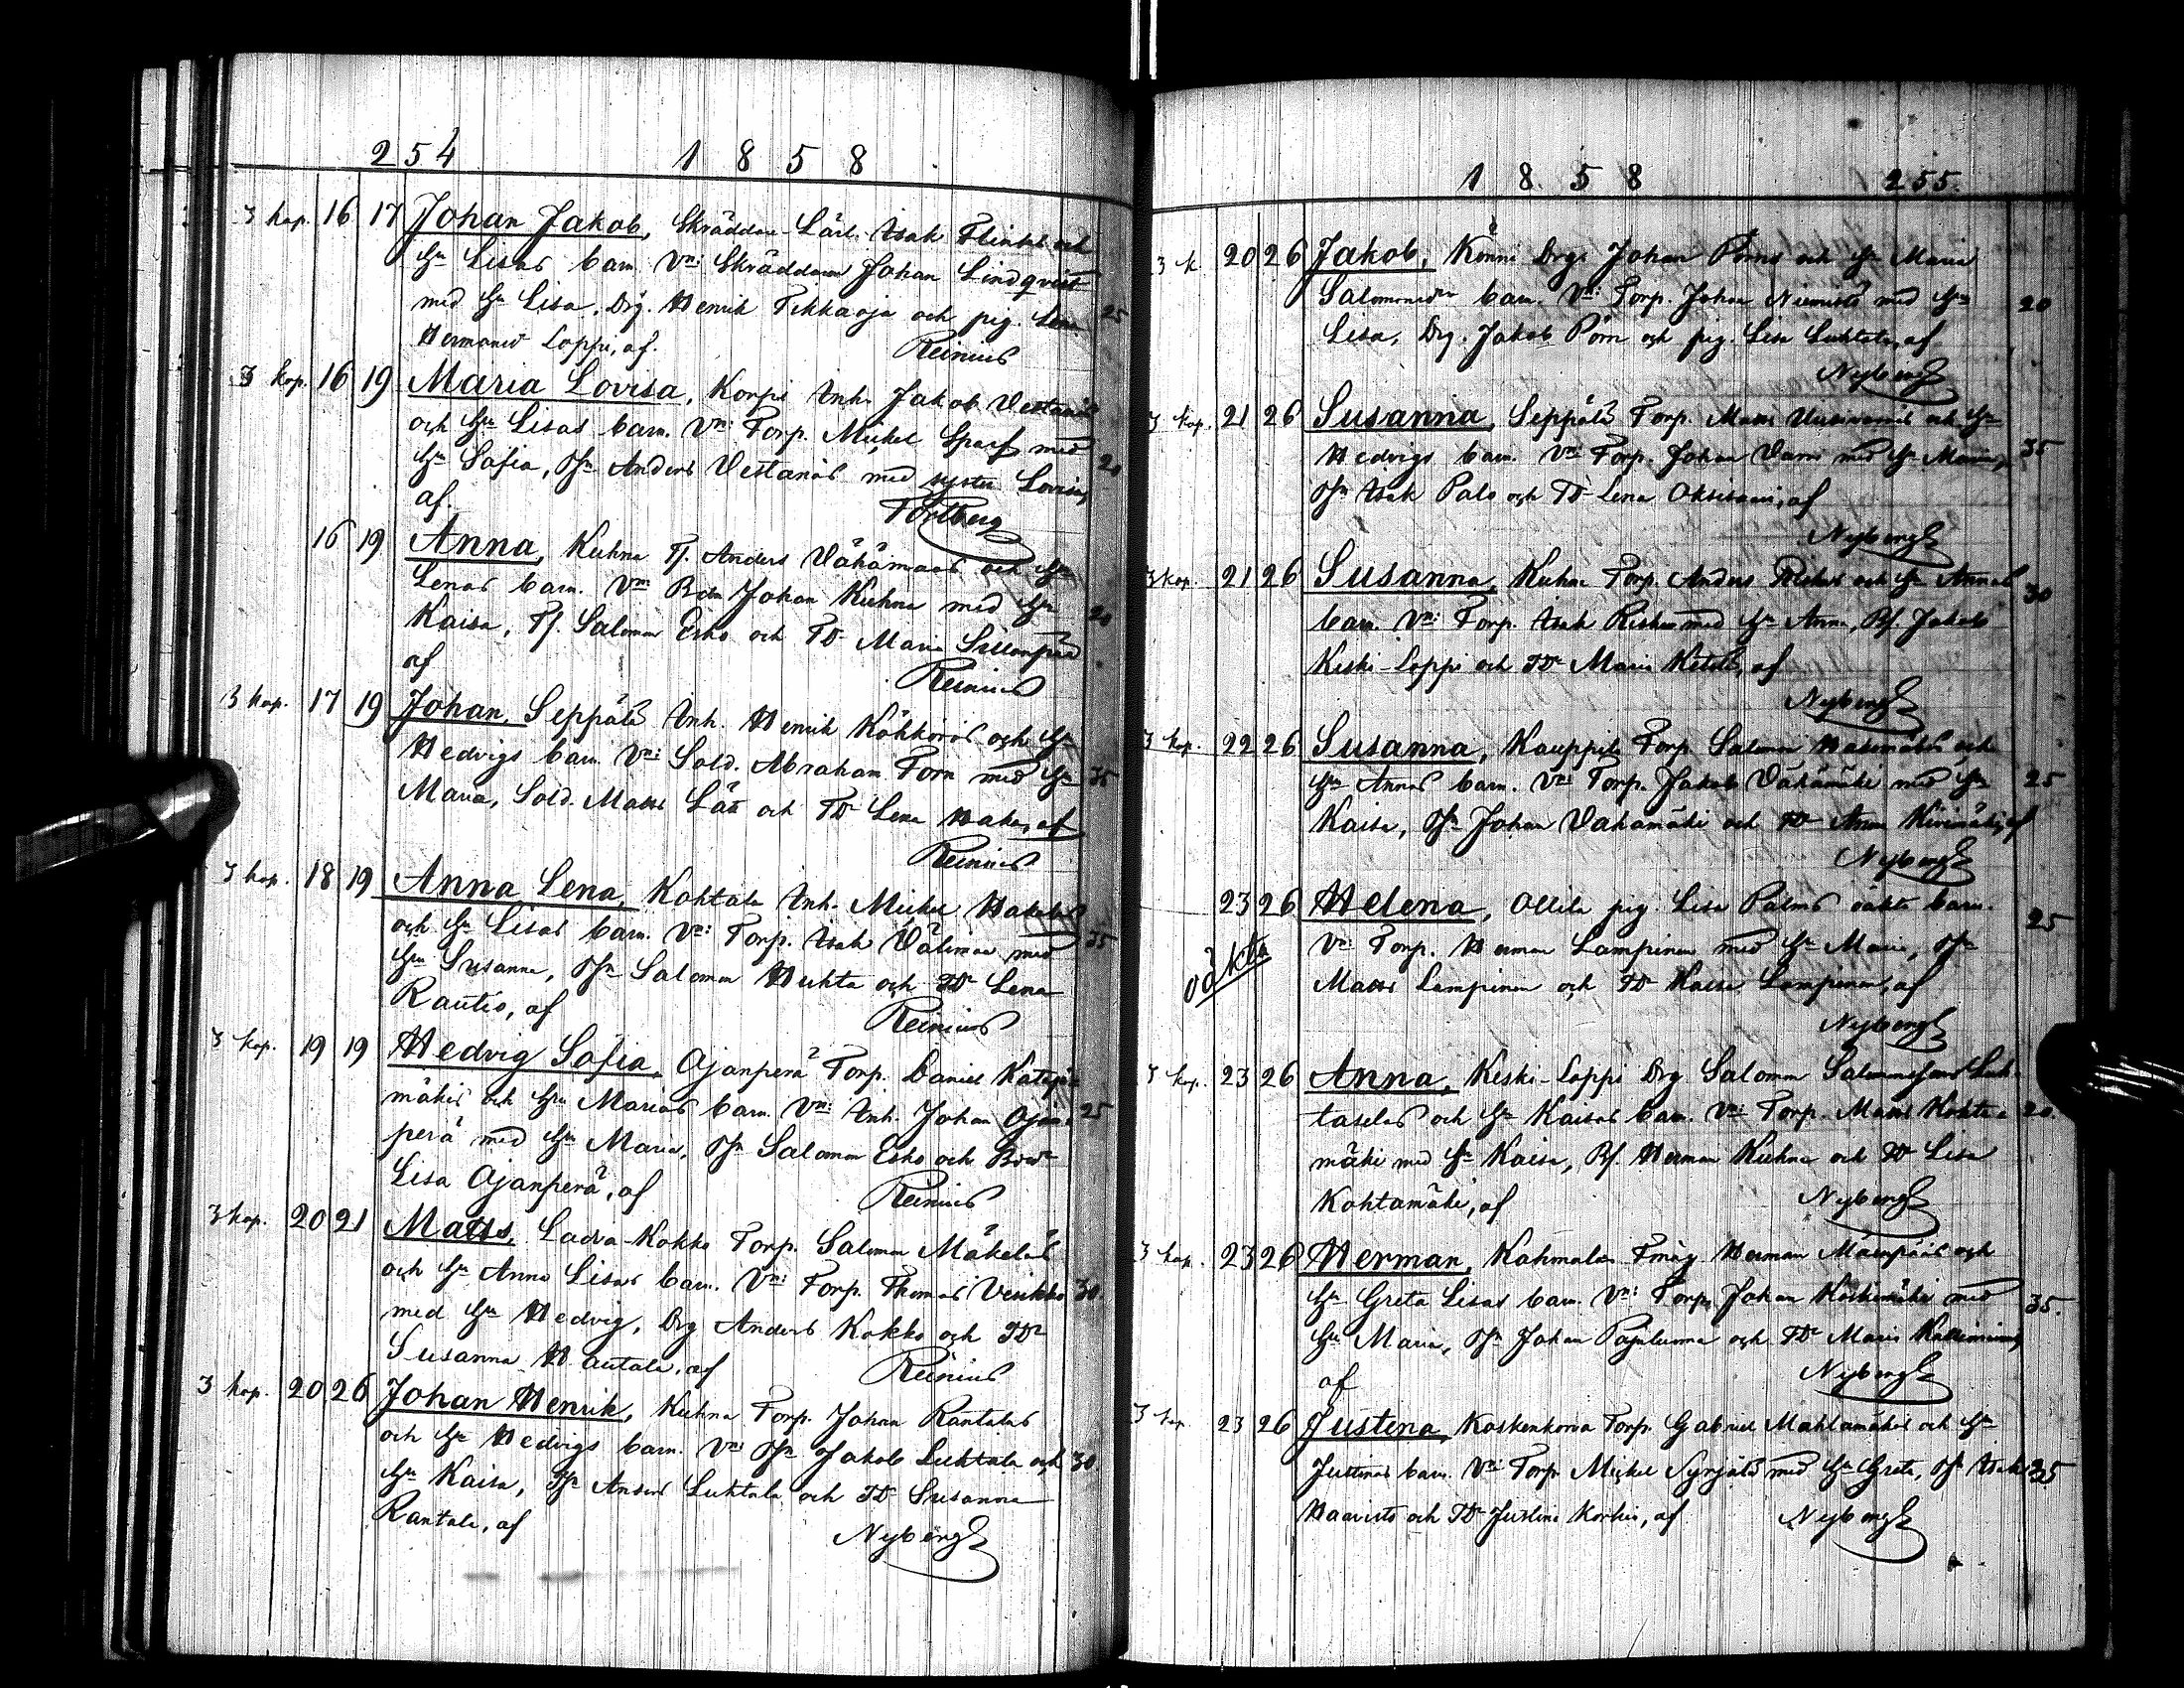 254 1858
3 kop. 16 17 Johan Jakob, Skräddare-Lärl. Isak Flinks och
Hu Lisas barn. Vn: Skräddaren Johan Lindqvist
med Hu Lisa, Drg. Henrik Tikkaoja och pig. Lena 25
Hermansd Loppi, af.
Reinius
3 kop. 16 19 Maria Lovisa, Korpi Inh. Jakob Vestanäs
och Hu Lisas barn. Vn: Torp. Mickel Sparf med
Hu Sofia, Ysn Anders Vestanäs med syster Lovisa, 20
af.
Forsberg
16 19 Anna, Kuhna Tf. Anders Vähämaas och Hu
Lenas barn. Vn: Bdn Johan Kuhna med Hu
Kaisa, Tf. Salomon Esko och TDr Maria Sillanpää 20
af
Reinius
3 kop. 17 19 Johan, Seppälä Inh. Henrik Köhkörös och Hu
Hedvigs barn. Vn: Sold. Abraham Torn med Hu 35
Maria, Sold. Matts Lätt och TDr Lena Haka, af
Reinius
3 kop. 18 19 Anna Lena, Kohtala Inh. Mickel
och Hu Lisas barn. Vn: Torp. Isak Välimaa med 35
Hu Susanna, Ysn Salomon Huhta och TDr Lena
Rautio, af
Reinius
3 kop. 19 19 Hedvig Sofia, Ojanperä Torp. Daniel Kataja-
mäkis och Hu Marias barn. Vn: Inh. Johan Ojan- 25
perä med Hu Maria, Ysn Salomon Esko och
Lisa Ojanperä, af
Reinius
3 kop. 20 21 Matts, Ladva-Kokko Torp. Salomon Mäkeläs
och Hu Anna Lisas barn. Vn: Torp. Thomas Verikko 30
med Hu Hedvig, Drg Anders Kokko och TDr
Susanna Hautala, af
Reinius
3 kop. 20 26 Johan Henrik, Kuhna Torp. Johan Rantalas
och Hu Hedvigs barn. Vn: Ysn Jakob Luhtala och 30
Hu Kaisa, Ysn Anders Luhtala och TDr Susanna
Rantala, af
Nyberg
1858 255.
3 k. 20 26 Jakob, Könni Drg. Johan Pörns och Hu Maria
Salomonsdr barn. Vn: Torp. Johan Niemistö med Hu 20
Lisa, Drg. Jakob Pörn och pig. Lisa Luhtala, af
Nyberg
3 kop. 21 26 Susanna, Seppälä Torp. Matts och Hu
Hedvigs barn. Vn: Torp. Johan med Hu Maria, 35
Ysn Isak Palo och TDr Lena Oksisaari, af
Nyberg
3 kop. 21 26 Susanna, Kuhna Torp. Anders Riskus och Hu Annas 30
barn. Vn: Torp. Isak Risku med Hu Anna, Bf. Jakob
Keski-Loppi och TDr Maria Ketola, af
Nyberg
3 kop. 22 26 Susanna, Kauppila Torp. Salomon och
Hu Annas barn. Vn: Torp. Jakob Vähämäki med Hu 25
Kaisa, Ysn Johan Vähämäki och TDr Anna Kivimäki, af
Nyberg
oäkta 23 26 Helena, Ollila pig. Lisa Palms oäkta barn. 25
Vn: Torp. Herman Lampinen med Hu Maria, Ysn
Matts Lampinen och TDr Kaisa Lampinen, af
Nyberg
3 kop. 23 26 Anna, Keski-Loppi Drg Salomon Salomonsson Luh-
taselas och Hu Kaisas barn. Vn: Torp. Matts Kohta- 20.
mäki med Hu Kaisa, Bf. Herman Kuhna och TDr Lisa
Kohtamäki, af
Nyberg
3 kop. 23 26 Herman, Kahmalan Tmåg Herman Mäenpääs och
Hu Greta Lisas barn. Vn: Torp. Johan Koskimäki med 35.
Hu Maria, Ysn Johan Pajuluoma och TDr Maria
af
Nyberg
3 kop. 23 26 Justena, Koskenkorva Torp. Gabriel Mahlamäkis och Hu
Justinas barn. Vn: Torp. Mickel Syrjälä med Hu Greta, Ysn Isak 35
Haavisto och TDr Justina Korhis, af
Nyberg